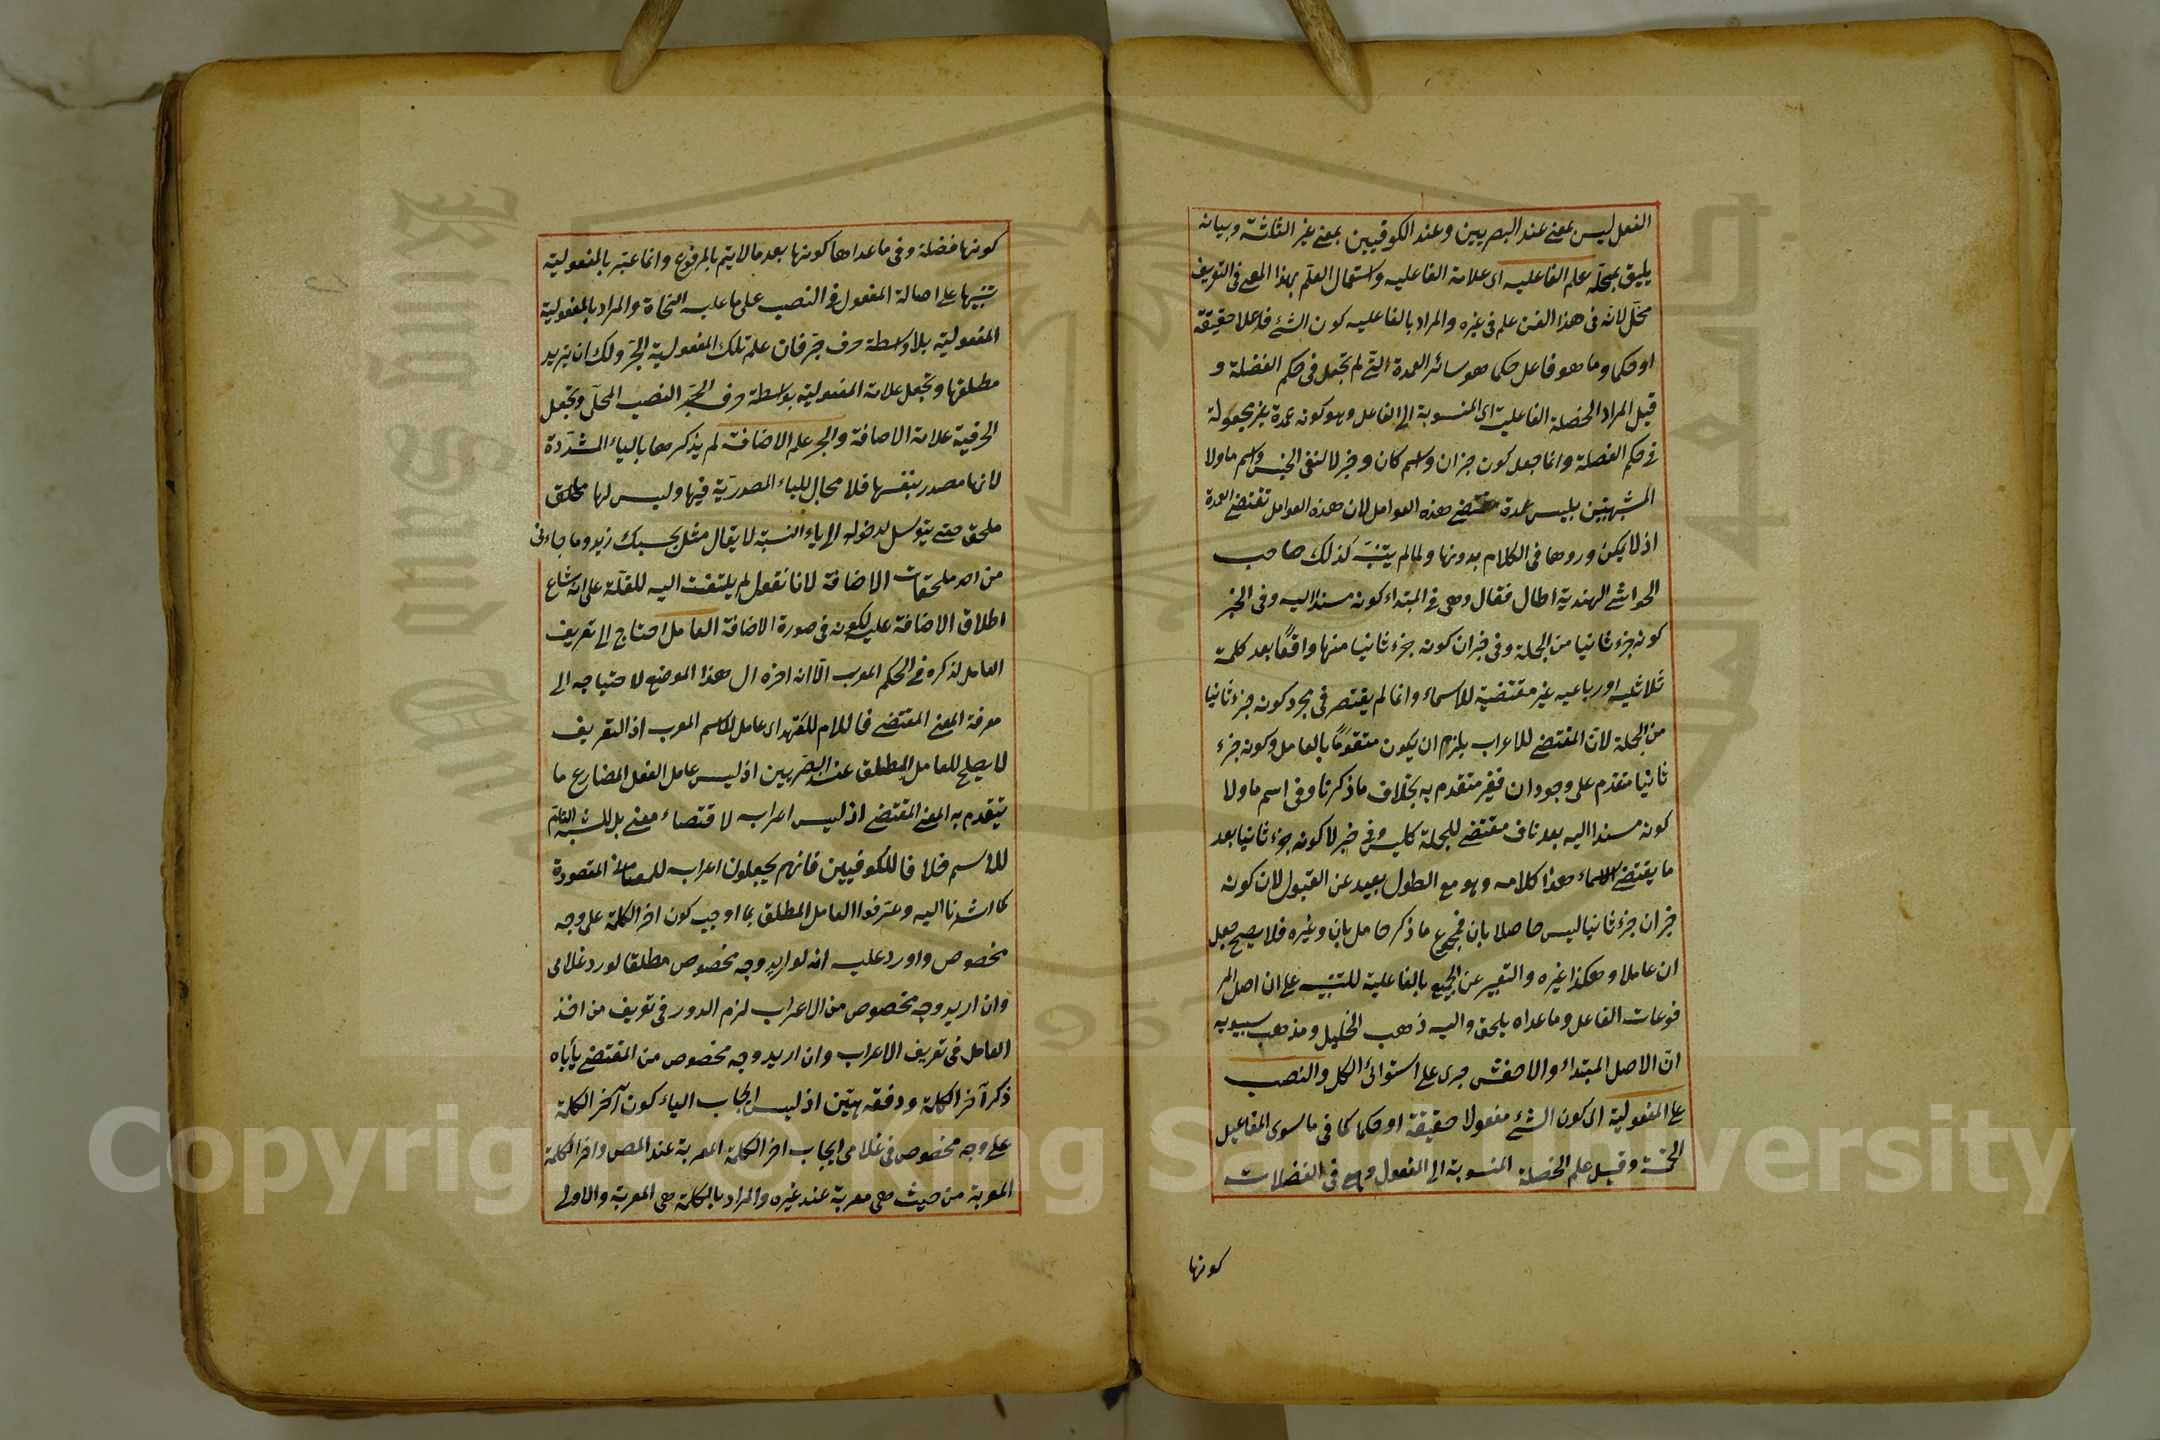 الفعل ليس بمعنى عند البصريين وعند الكوفيين بمعنى غير الثلثة وبيانه
يليق بمحله علم الفاعليه اى علامة الفاعليه واستعمال العلم بهذا المعنى فى التعريف
مخل لانه فى هذا الفن علم فى غيره والمراد بالفاعليه كون الشئ فاعلا حقيقة
او حكما وما هو فاعل حكما هو سائر العمدة التى لم تجعل فى حكم الفضلة و
قيل المراد الخصلة الفاعلية اى المنسوبة الى الفاعل وهو كونه عمدة غير مجعولة
فى حكم الفضلة وانما جعل كون خبر ان واسم كان وخبر لا لنفى الجنس واسم ما ولا
المشبهتين بليس عمدة مقتضى هذه العوامل لان هذه العوامل تقتضى العمدة
اذ لا يمكن ورودها فى الكلام بدونها ولما لم يتنبه كذلك صاحب
الحواشى الهندية اطال فقال وهى فى المبتداء كونه مسندا اليه وفى الخبر
كونه جزء ثانيا من الجملة وفى خبر ان كونه جزء ثانيا منها واقعا بعد كلمة
ثلاثيه او رباعيه غير مقتضية للاسماء وانما لم يقتصر فى مجرد كونه جزء ثانيا
من الجملة لان المقتضى للاعراب يلزم ان يكون متقوما بالعامل وكونه جزء
ثانيا متقدم على وجود ان فغير متقدم به بخلاف ما ذكرنا وفى اسم ما ولا
كونه مسندا اليه بعد ناف مقتضى للجملة كليس وفى خبر لا كونه جزء ثانيا بعد
ما يقتضى الاسماء هذا كلامه وهو مع الطول بعيد عن القبول لان كونه
خبر ان جزء ثانيا ليس حاصلا بان فمجموع ما ذكر حاصل بان وغيره فلا يصح جعل
ان عاملا وهكذا غيره والتعبير عن الجميع بالفاعلية للتنبيه على ان اصل المر
فوعات الفاعل وما عداه يلحق واليه ذهب الخليل ومذهب سيبويه
ان الاصل المبتداء والاخفش جرى على استوائ الكل والنصب
علم المفعولية اى كون الشئ مفعولا حقيقة او حكما كما فى ما سوى المفاعيل
الخمسة وقيل علم الخصلة المنسوبة الى المفعول وهى فى الفضلات
كونها
كونها فضلة وفى ما عداها كونها بعد ما لا يتم بالمرفوع وانما عبر بالمفعولية
تنبيها على اصالة المفعول فى النصب على ما عليه النحاة والمراد بالمفعولية
المفعولية بلا واسطة حرف جر فان علم تلك المفعولية الجر ولك ان تريد
مطلقها وتجعل علامة المفعولية بواسطة حرف الجر النصب المحلى وتجعل
الحرفية علامة الاضافة والجر علم الاضافة لم يذكرها بالياء المشددة
لانها مصدر بنفسها فلا مجال للياء المصدرية فيها وليس لها ملحق
ملحق حتى يتوسل لدخوله الى ياء النسبة لا يقال مثل بحسبك زيد وما جاءنى
من احد ملحقات الاضافة لانا نقول لم يلتفت اليه للقلة على انه شاع
اطلاق الاضافة عليه لكونه فى صورة الاضافة العامل احتاج الى تعريف
العامل لذكره فى الحكم المعرب الا انه اخره الى هذا الموضع لاحتياجه الى
معرفة المعنى المقتضى فاللام للعهد اى عامل الاسم المعرب اذ التعريف
لا يصلح للعامل المطلق عند البصريين اذ ليس عامل الفعل المضارع ما
يتقدم به المعنى المقتضى اذ ليس اعرابه لاقتضاء معنى بل للشبه التام
للاسم خلافا للكوفيين فانهم يجعلون اعرابه للمعانى المقصودة
كما اشرنا اليه وعرفوا العامل المطلق بما اوجب كون اخر الكلمة على وجه
مخصوص واورد عليه انه لو اريد وجه مخصوص مطلقا لورد غلامى
وان اريد وجه مخصوص من الاعراب لزم الدور فى تعريف من اخذ
العامل فى تعريف الاعراب وان اريد وجه مخصوص من المقتضى يأباه
ذكر آخر الكلمة ودفعه هين اذ ليس ايجاب الياء كون آخر الكلمة
على وجه مخصوص فى غلامى ايجاب اخر الكلمة المعربة عند المص واخر الكلمة
المعربة من حيث هى معربة عند غيره والمراد بالكلمة هى المعربة والاولى